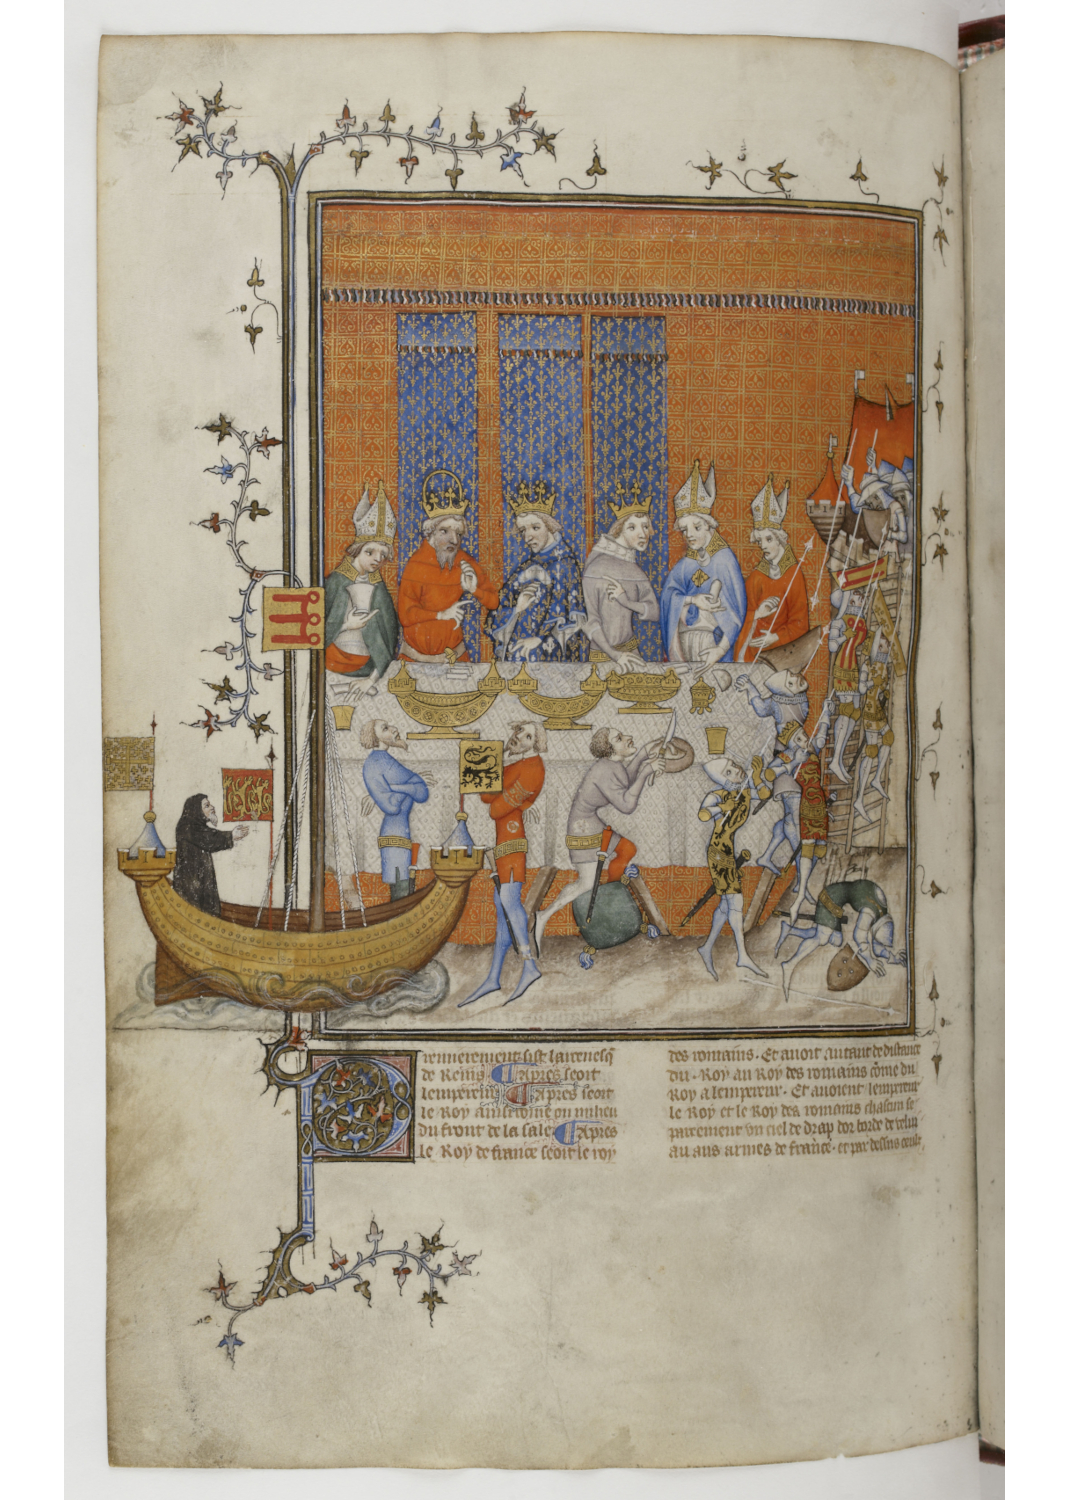 Premierement sist larcevesq
de Reins. Apres seoit
lempereur. Apres seoit
le Roy ainsi come ou milieu
du front de la sale. Apres
le Roy de france seoit le roy
des romains. Et avoit autant de distance
du Roy au Roy des romains come du
Roy a lempereur. Et avoient lempereur
le Roy et le Roy des romains chascun se
parement un ciel de drap dor borde de veluiau
au aus armes de france. et par dessus